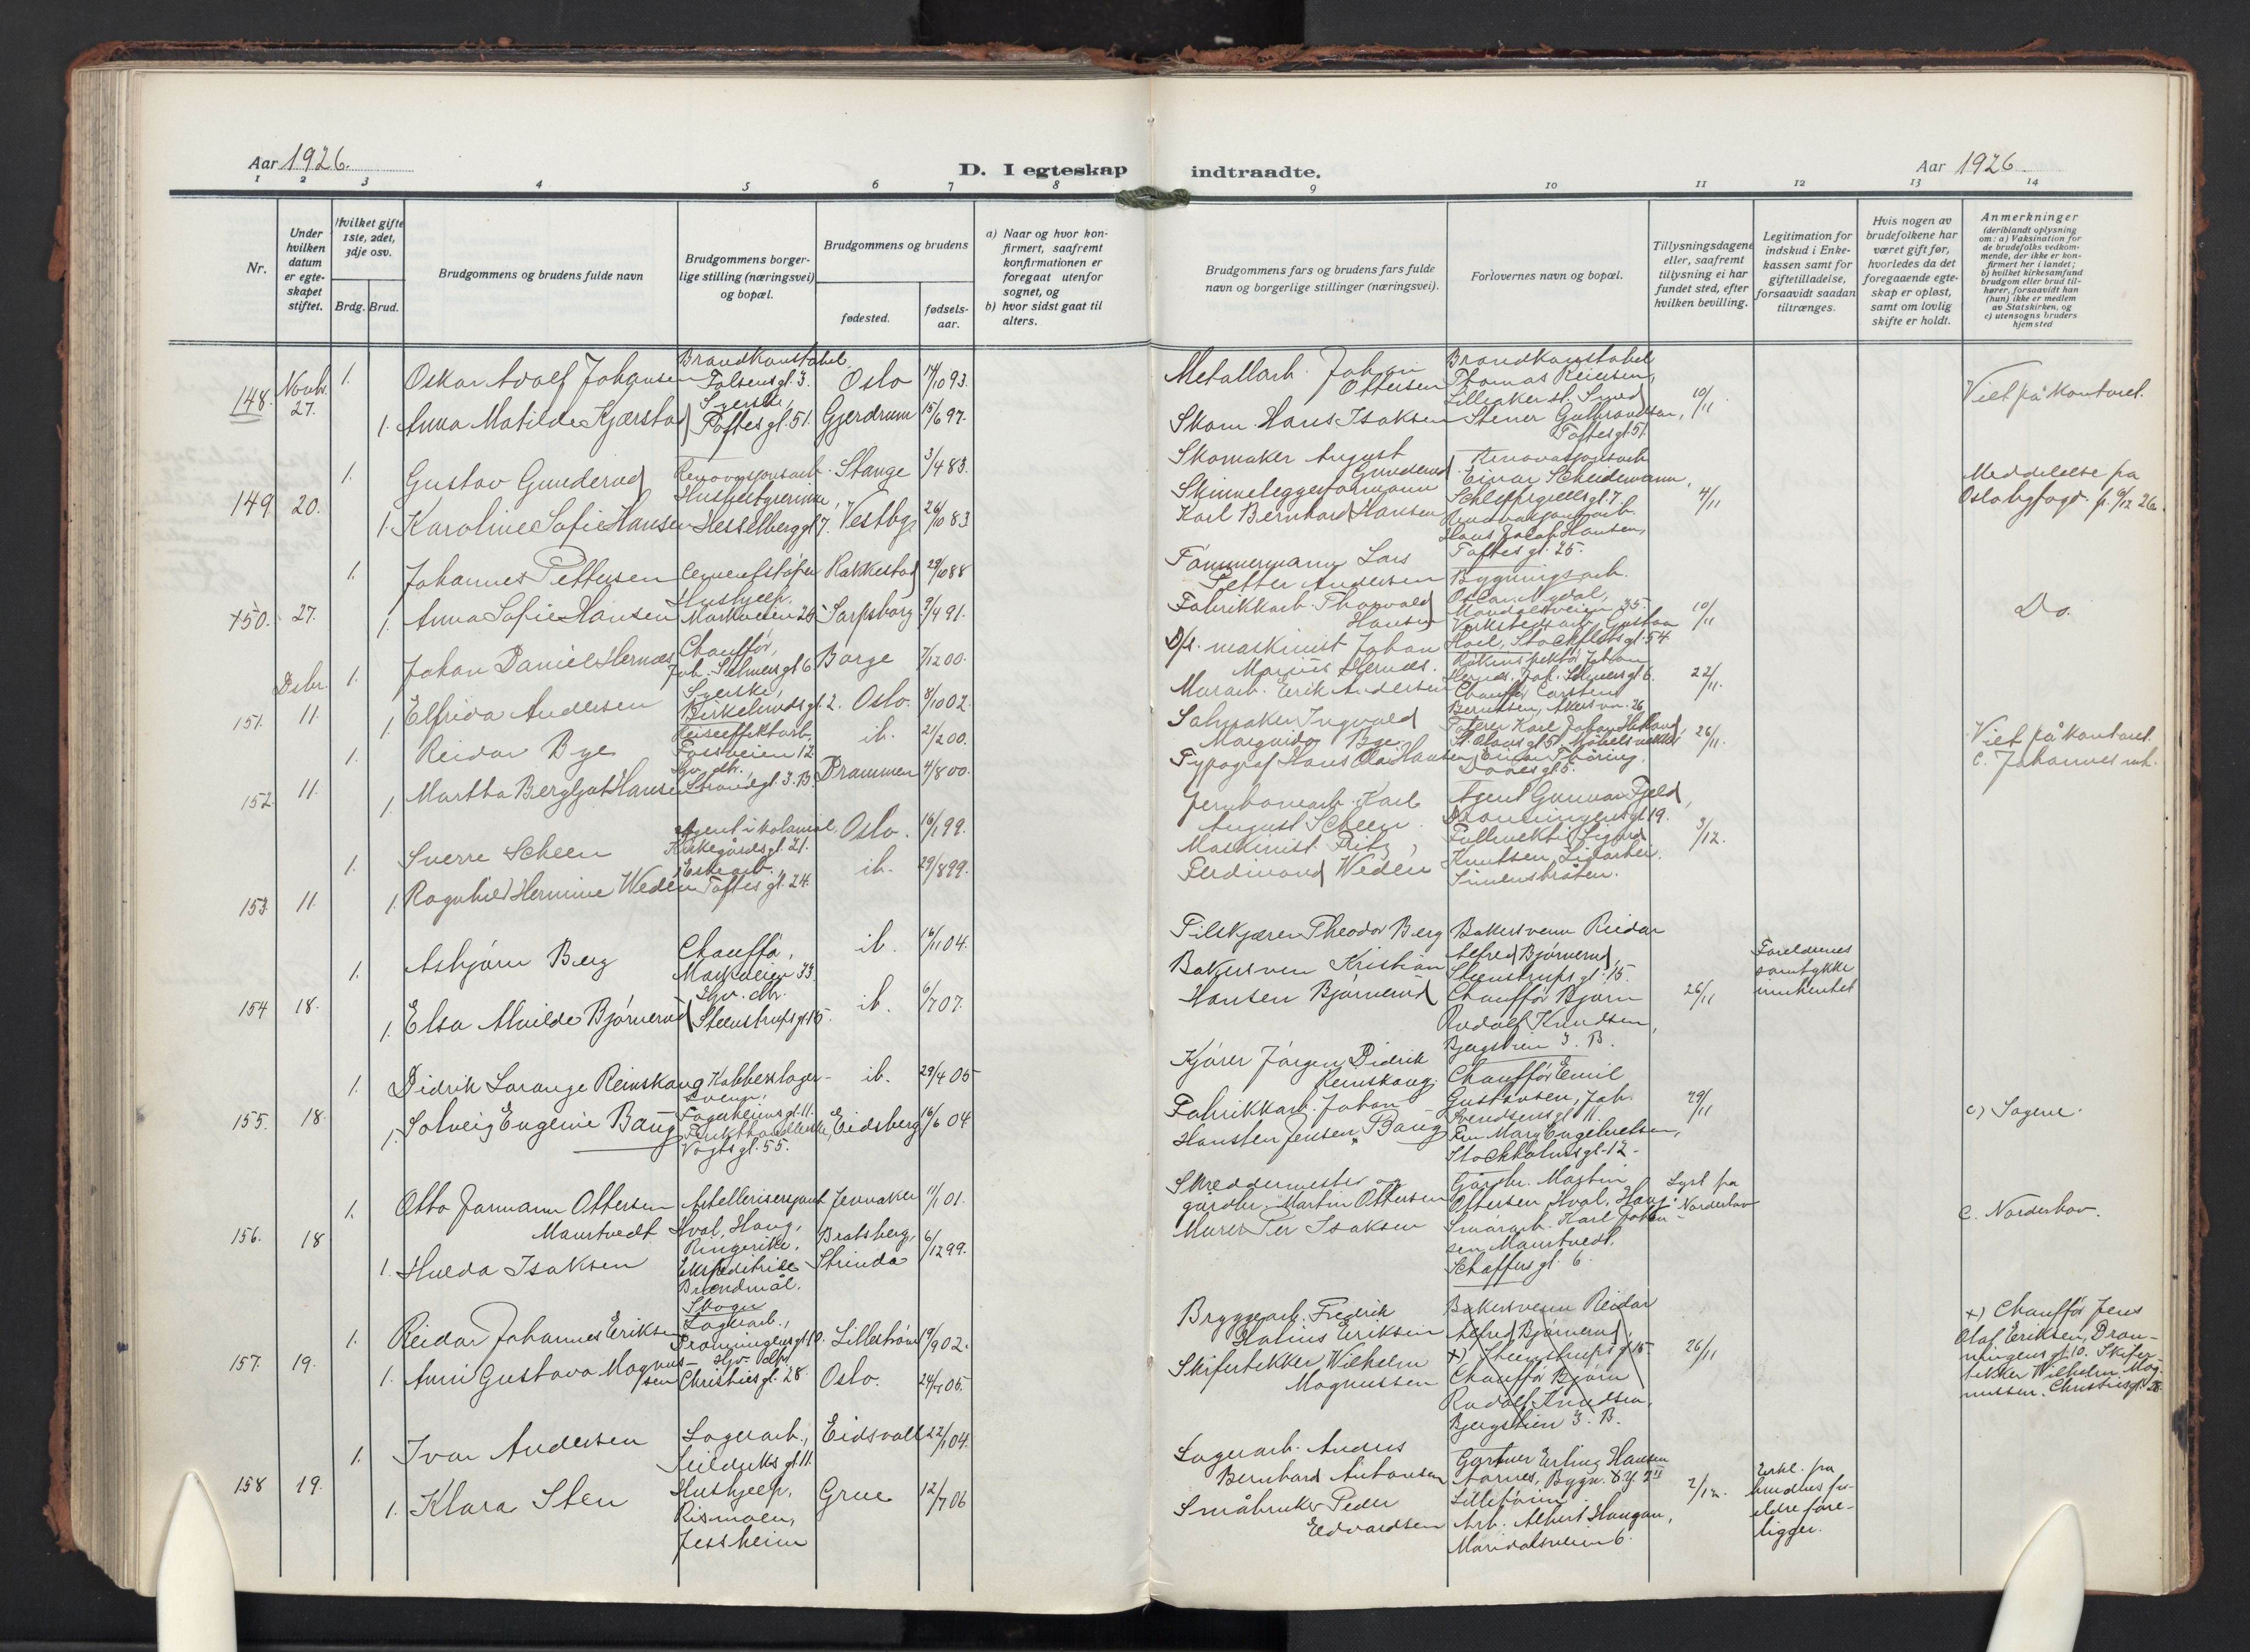 Aar 1926.
D. I egteskap indtraadte.
Aar 1926
1 2 3 4 5 6 7 8 9 10 11 12 13 14
Nr.
Under hvilken datum er egteskapet stiftet.
Hvilket gifte 1ste, 2det, 3dje osv.
Brdg. Brud.
Brudgommens og brudens fulde navn
Brudgommens borgerlige stilling (næringsvei) og bopæl.
Brudgommens og brudens
fødested.
fødselsaar.
a) Naar og hvor konfirmert, saafremt konfirmationen er foregaat utenfor sognet, og
b) hvor sidst gaat til alters.
Brudgommens fars og brudens fars fulde navn og borgerlige stillinger (næringsvei).
Forlovernes navn og bopæl.
Tillysningsdagene eller, saafremt tillysning ei har fundet sted, efter hvilken bevilling.
Legitimation for indskud i Enkekassen samt for giftetilladelse, forsaavidt saadan tiltrænges.
Hvis nogen av brudefolkene har været gift før, hvorledes da det foregaaende egteskap er opløst, samt om lovlig skifte er holdt.
Anmerkninger (deriblandt oplysning om: a) Vaksination for de brudefolks vedkommende, der ikke er konfirmert her i landet; b) hvilket kirkesamfund brudgom eller brud tilhører, forsaavidt han (hun) ikke er medlem av Statskirken, og c) utensogns bruders hjemsted
148. Novbr. 27.
1. Oskar Adolf Johansen
Brandkonstabel
Falsensgt. 3.
Oslo 14/10 93.
1. Anna Matilde Kjærstad
Syerske,
Toftesgt. 51.
Gjerdrum 15/6 97.
Metallarb. Johan
Ottersen
Skom. Hans Isaksen
Brandkonstabel
Thomas Reiersen,
Lilleaker st. Smed
Stener Gulbrandsen,
Toftesgt 51.
10/11.
Viet på kontoret.
149. 20.
1. Gustav Gunderud
Renovasjonsarb.
Stange 3/4 83.
1. Karoline Sofie Hansen
Husbestyrerinne,
Hesselberggt 7.
Vestby 26/10 83
Skomaker August
Gunderud.
Skinneleggerformann
Karl Bernhard Hansen
Renovasjonsarb
Einar Scheidemann,
Schleppegrellsgt. 7.
Renovasjonsarb.
Hans Jacob Hansen,
Toftes gt. 25.
4/11
Meddelelse fra
Oslo byfogd. fr. 9/12 26.
150. 27.
1. Johannes Pettersen
Cementstøper
Rakkestad 29/10 88
1. Anna Sofie Hansen
Hushjelp.
Markveien 25
Sarpsborg 9/4 91.
Tømmermann Lars
Petter Andersen
Fabrikkarb. Thorvald
Hansen
Bygningsarb.
Oscar Mydal,
Mandalsveien 35.
Verkstedsarb. Gustav
Hoel, Stockfletsgt. 54
10/11
Do.
Dsbr.
151. 11.
1. Johan Daniel Hernæs
Chauffør,
Joh. Selmersgt 6
Borge 7/12 00.
1. Elfrida Andersen
Syerske,
Birkelundsgt. 2.
Oslo. 8/10 02.
D/s. maskinist Johan
Marius Hernæs.
Murarb. Erik Andersen
Hernæs. Joh. Selmersgt 6.
Chauffør Carsten
Berntsen, Akersvn. 26
22/11.
152. 11.
1. Reidar Bye
Reiseeffektarb.
Fossveien 12
ib. 21/2 00.
1. Martha Bergljot Hansen
Hjv. dtr.
Strandgt. 3. B.
Drammen 4/8 00.
Salmaker Ingvald
Marquido Bye.
Typograf Hans Olai Hansen
St. Olavsgt 5.
Einar Thoring,
Daaesgt 5.
26/11.
Viet på kontoret.
c. Johannes mh.
153. 11.
1. Sverre Scheen
Agent i kolonial
Kirkegårdsgt 21.
Oslo. 16/1 99.
1. Ragnhild Hermine Wedén
Eskearb.,
Toftes gt. 24.
ib. 29/8 99.
Jernbanearb. Karl
August Scheen.
Maskinist Fritz
Ferdinand Wedén
Agent Gunnar Fjeld,
Dronningensgt 19.
Fullmektig Sigurd
Knutsen, Lidarbei,
Simenstråten.
3/12.
154 18.
1. Asbjørn Berg
Chauffør,
Markveien 33.
ib. 16/11 04.
1. Elsa Alvilde Bjørnerud
Hjv. dtr.
Steenstrupsgt 15.
ib. 6/7 07.
Filskjærer Theodor Berg
Bakersven Kristian
Hansen Bjørnerud
Bakersvenn Reidar
Alfred Bjørnerud,
Steenstrups gt. 15.
Chauffør Bjørn
Rudolf Knudsen,
Bjergstien 3. B.
26/11
Foreldrenes
samtykke
innhentet
155. 18.
1. Didrik Lorange Reinskaug
Kobberslager-
svenn,
Fagerheimsgt. 11.
ib. 29/4 05
1. Solveig Eugenie Baug
Frukthandlerske,
Vogtsgt. 55.
Eidsberg 16/6 04
Kjører Jørgen Didrik
Reinskaug.
Fabrikkarb. Johan
Hansten Jensen Baug
Chauffør Emil
Gustavsen, Joh.
Svendsensgt 11.
Fru Mary Engebretsen,
Stockholmsgt. 12-
29/11
c) Sagene.
156. 18
1. Otto Jarmann Ottersen
Maurtvedt
Artellerisersjant
Hval, Haug,
Ringerike.
Jevnaker 11/1 01.
1. Hulda Isaksen
Ekspeditrise
Brændmål.
Skogn
Bratsberg,
Strinda 6/12 99.
Skreddermester og
gårdbr. Martin Ottersen
Murer Per Isaksen
Gårdbr. Martin
Ottersen Hval, Haug.
Smørarb. Karl Johan-
sen Maurtvedt,
Schaffers gt. 6.
Lyst på
Norderhov
c. Norderhov.
157. 19.
1. Reidar Johannes Eriksen
Lagerarb.,
Dronningensgt 10.
Lillestrøm 19/9 02.
1. Anni Gustava Magnus-
sen
Hjv. dtr.
Christiesgt. 28
Oslo. 24/1 05.
Bryggearb. Fredrik
Halius Eriksen
Skifertekker Wilhelm
Magnussen
Bakersvenn Reidar
Alfred Bjørnerud,
x) Steenstrupsgt 15.
Chauffør Bjørn
Rudolf Knudsen,
Bjergstien 3. B.
26/11
x) Chauffør Jens
Olaf Eriksen, Dron-
ningensgt. 10. Skifer-
tekker Wilhelm Mag-
nussen. Christiesgt 28.
158 19.
1. Ivar Andersen
Lagerarb.,
Seilduksgt 11.
Eidsvoll 22/1 04.
1. Klara Sten
Hushjelp,
Rismoen,
Jessheim
Grue 12/7 06
Lagerarb. Anders
Bernhard Antonsen
Småbruker Peder
Edvardsen
Gartner Erling Hansen
Aarnes, Bygn.
Arb. Albert Haugan,
Maridalsveien 6.
2/12.
Erkl. fra
brudens for-
eldre fore-
ligger.